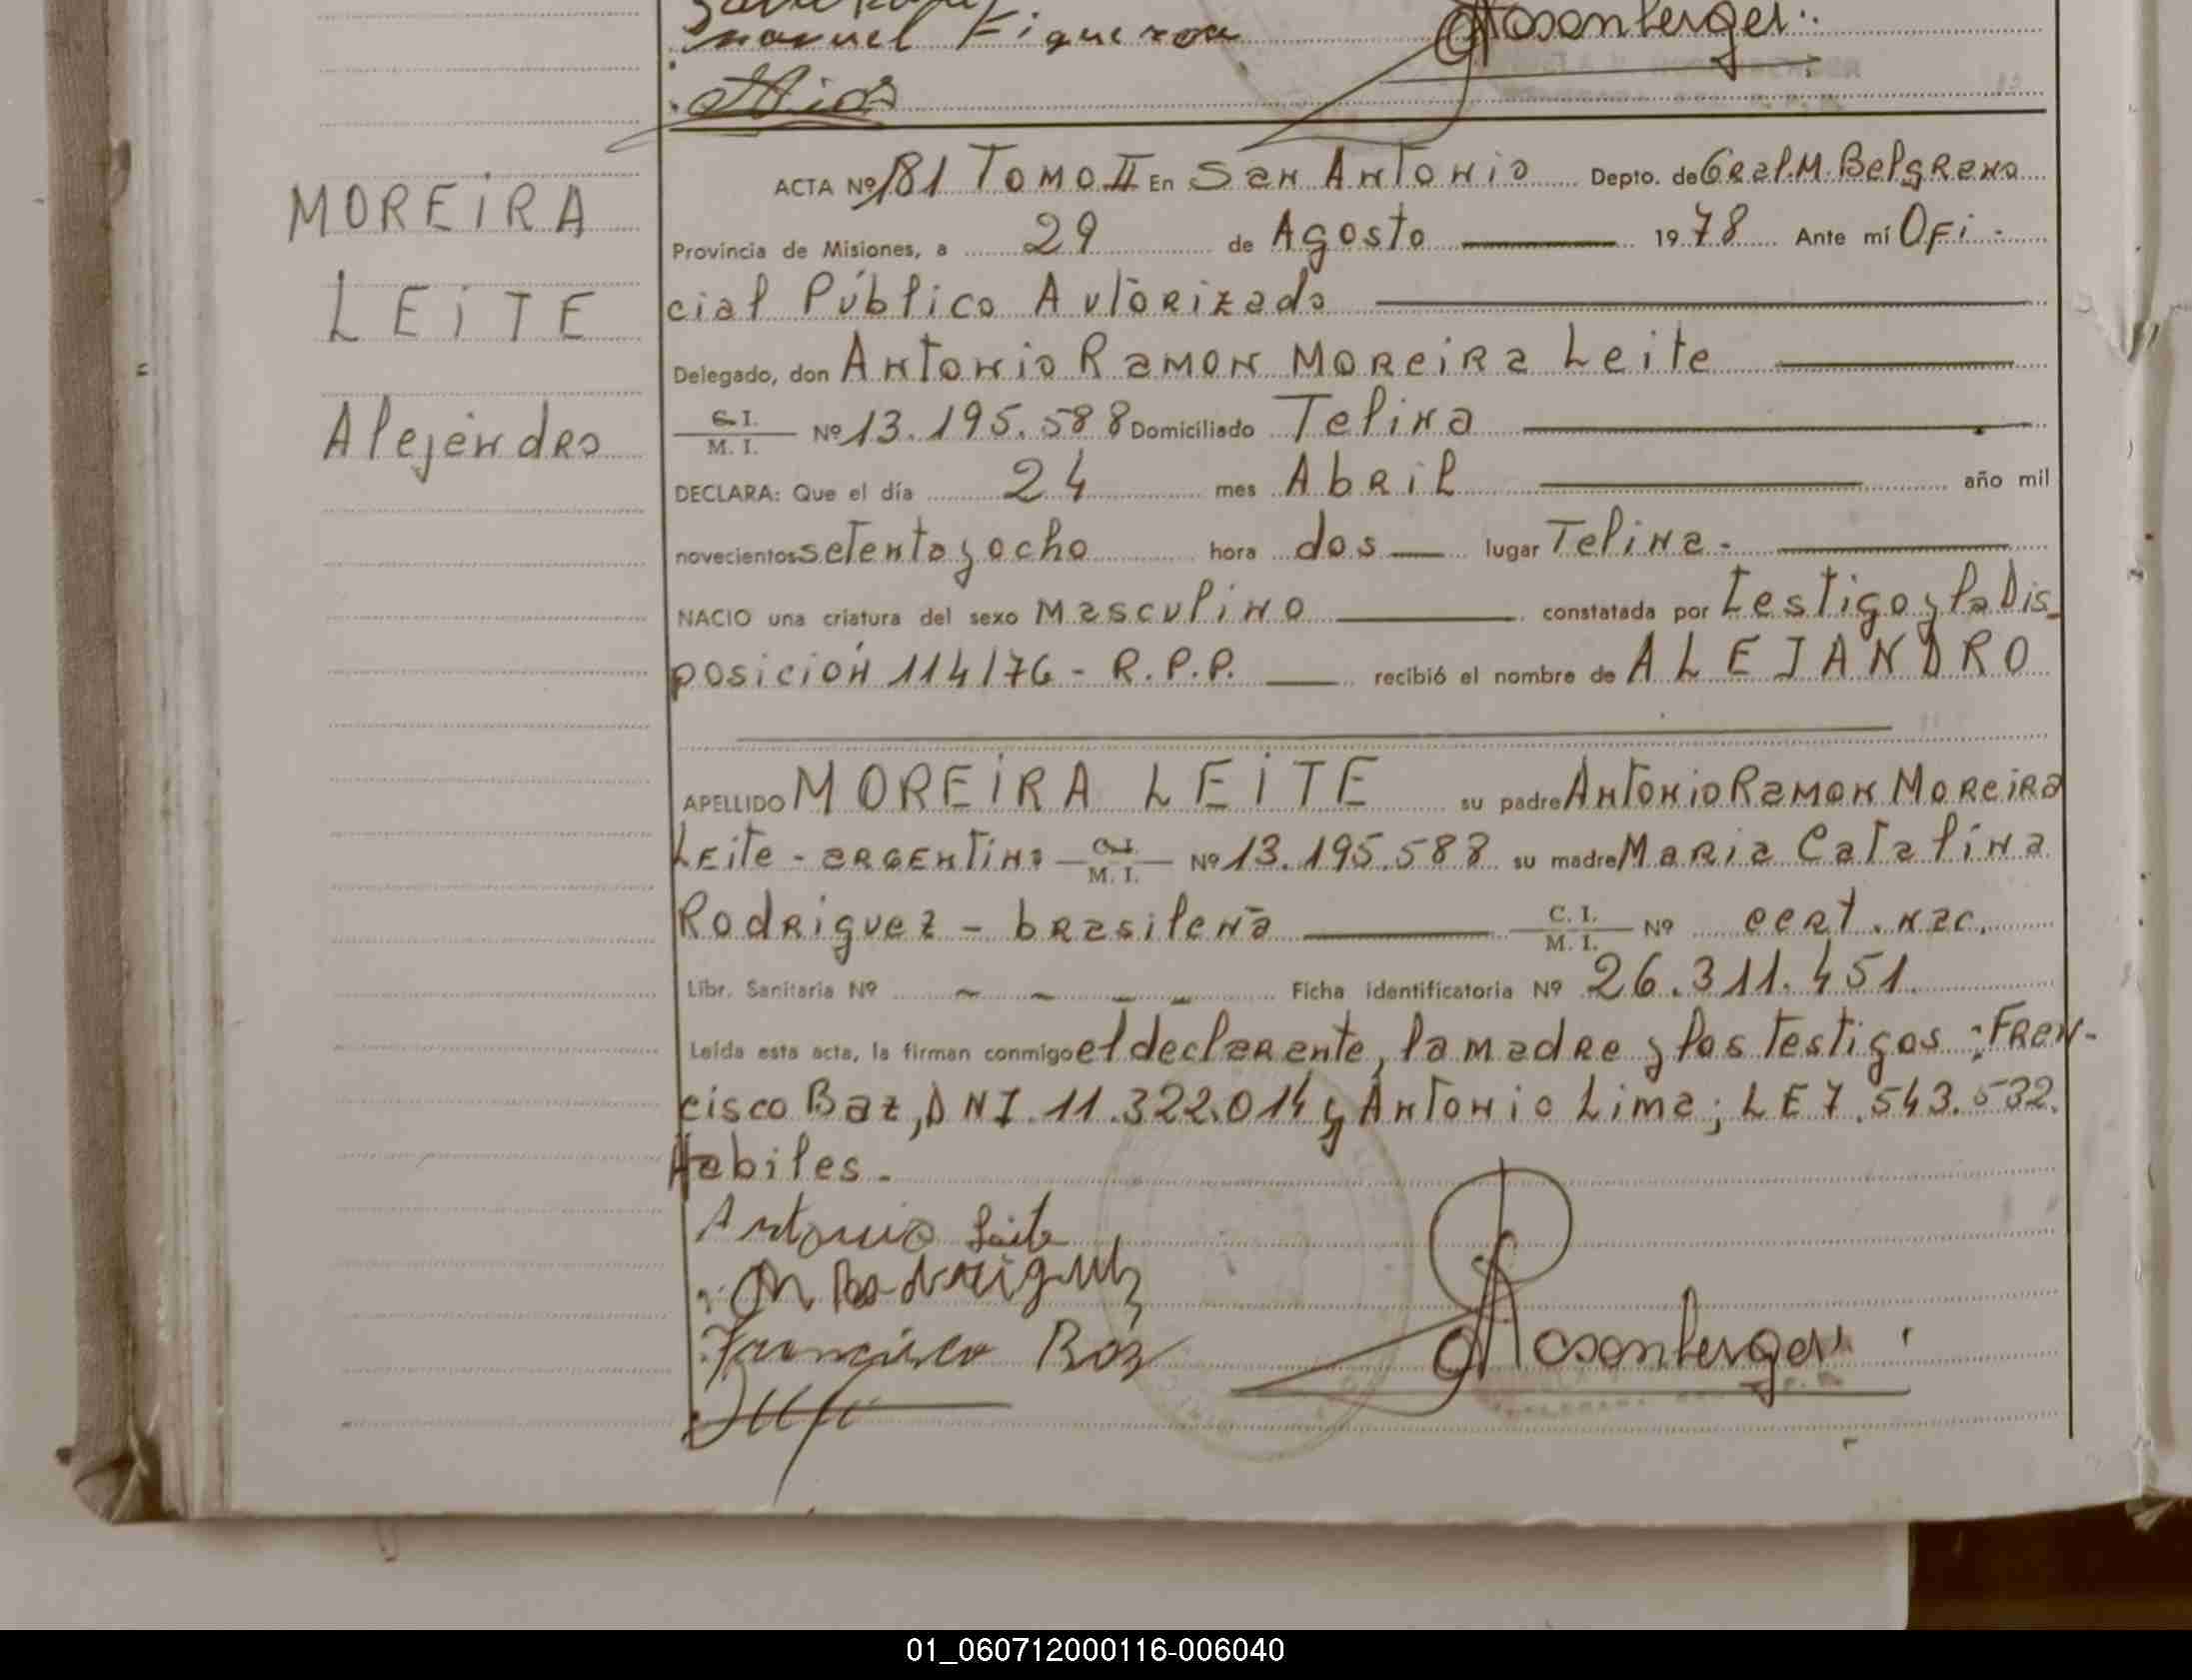 Manuel Figueroa
Rosenberger
MOREIRA
LEITE
Alejandro
ACTA Nº 181 Tomo II En San Antonio Depto. de Gral. M. Belgrano
Provincia de Misiones, a 29 de Agosto 1978 Ante mí Ofi-
cial Público Autorizado
Delegado, don Antonio Ramon Moreira Leite
C.I. M. I. Nº 13.195.588 Domiciliado Telina
DECLARA: Que el día 24 mes Abril año mil
novecientos setenta y ocho hora dos lugar Telina.
NACIO una criatura del sexo Masculino constatada por testigo y la Dis
posición 114/76 - R.P.P. recibió el nombre de ALEJANDRO
APELLIDO MOREIRA LEITE su padre Antonio Ramon Moreira
Leite - argentino C.I. M. I. Nº 13.195.588 su madre Maria Catalina
Rodriguez - brasileña C. I. M. I. Nº cert. nac.
Libr. Sanitaria Nº - - - - Ficha identificatoria Nº 26.311.451.
Leída esta acta, la firman conmigo el declarante, la madre y los testigos: Fran-
cisco Baz, DNI. 11.322.014 y Antonio Lima; LE 7.543.532.
Habiles.
Antonio Leite
M Rodriguez
Francisco Baz
Rosenberger
01_060712000116-006040